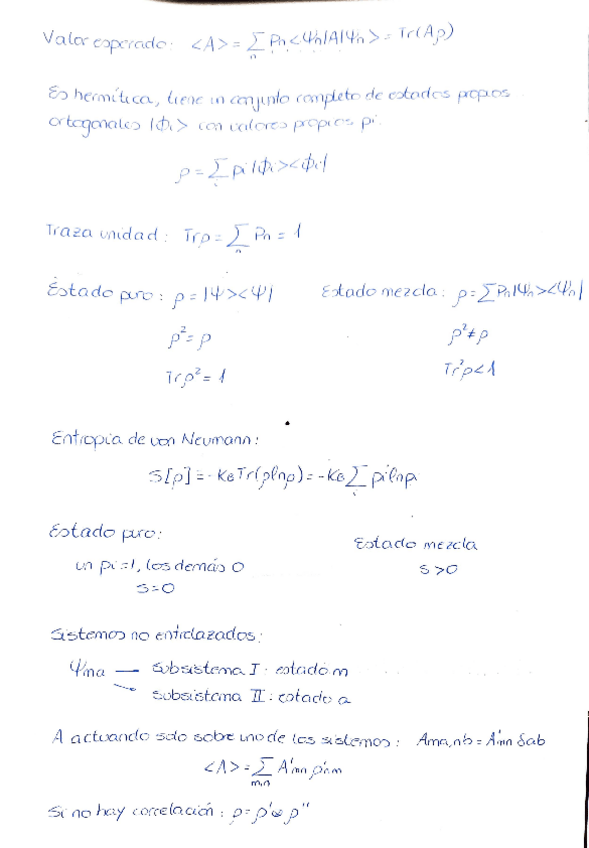 Valor esperado: <A> = ∑n Pn <Ψn|A|Ψn> = Tr(Aρ)
Es hermítica, tiene un conjunto completo de estados propios
ortogonales |ϕi> con valores propios pi.
ρ = ∑i pi |ϕi><ϕi|
Traza unidad: Trρ = ∑n Pn = 1
Estado puro: ρ = |Ψ><Ψ| Estado mezcla: ρ = ∑ Pn|Ψn><Ψn|
ρ² = ρ ρ² ≠ ρ
Trρ² = 1 Tr²ρ < 1
Entropía de von Neumann:
S[ρ] = -KB Tr(ρlnρ) = -KB ∑i pi lnpi
Estado puro: Estado mezcla
un pi=1, los demás 0 S > 0
S = 0
Sistemas no entrelazados:
Ψma — subsistema I: estado m
subsistema II: estado a
A actuando solo sobre uno de los sistemas: Ama,nb = A'mn δab
<A> = ∑m,n A'mn ρ'nm
Si no hay correlación: ρ = ρ' ⊗ ρ''